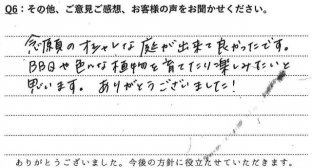 Q6：その他、ご意見ご感想、お客様の声をお聞かせください。
念願のオシャレな庭が出来て良かったです。
BBQや色んな植物を育てたり楽しみたいと
思います。ありがとうございました！
ありがとうございました。今後の方針に役立たせていただきます。